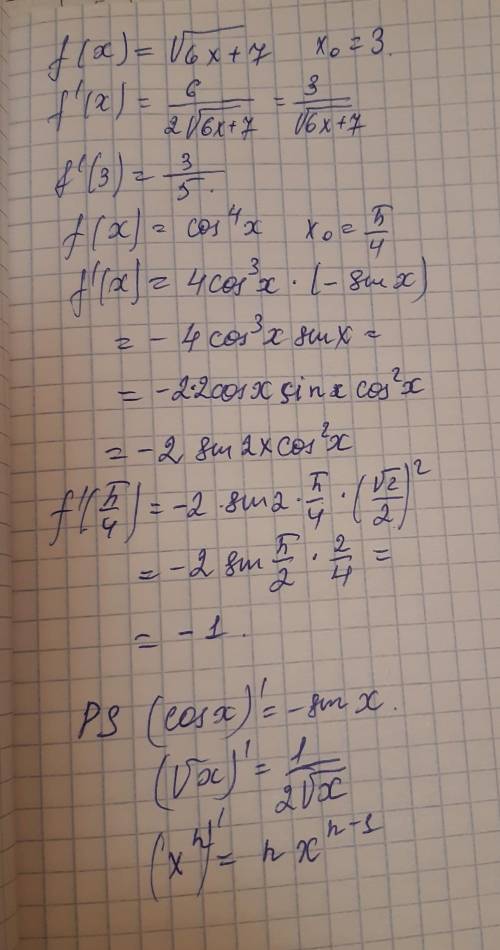 f(x) = √(6x+7)   x₀ = 3.
f'(x) = 6/(2√(6x+7)) = 3/√(6x+7)
f'(3) = 3/5.
f(x) = cos⁴x   x₀ = π/4
f'(x) = 4cos³x · (- sin x)
= - 4cos³x sin x =
= -2·2cosx sinx cos²x
= -2 sin 2x cos²x
f'(π/4) = -2 · sin 2 · π/4 · (√2/2)²
= -2 sin π/2 · 2/4 =
= -1.
PS (cosx)' = - sin x.
(√x)' = 1/(2√x)
(xⁿ)' = n xⁿ⁻¹